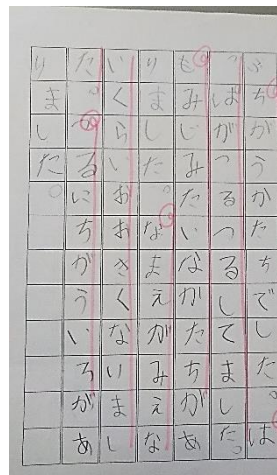 ちがうかたちでした。は
っぱがつるつるしてました。
もみじみたいなかたちがあ
りました。なまえがみえな
いくらいおおきくないまし
た。つるにちがういろがあ
りました。